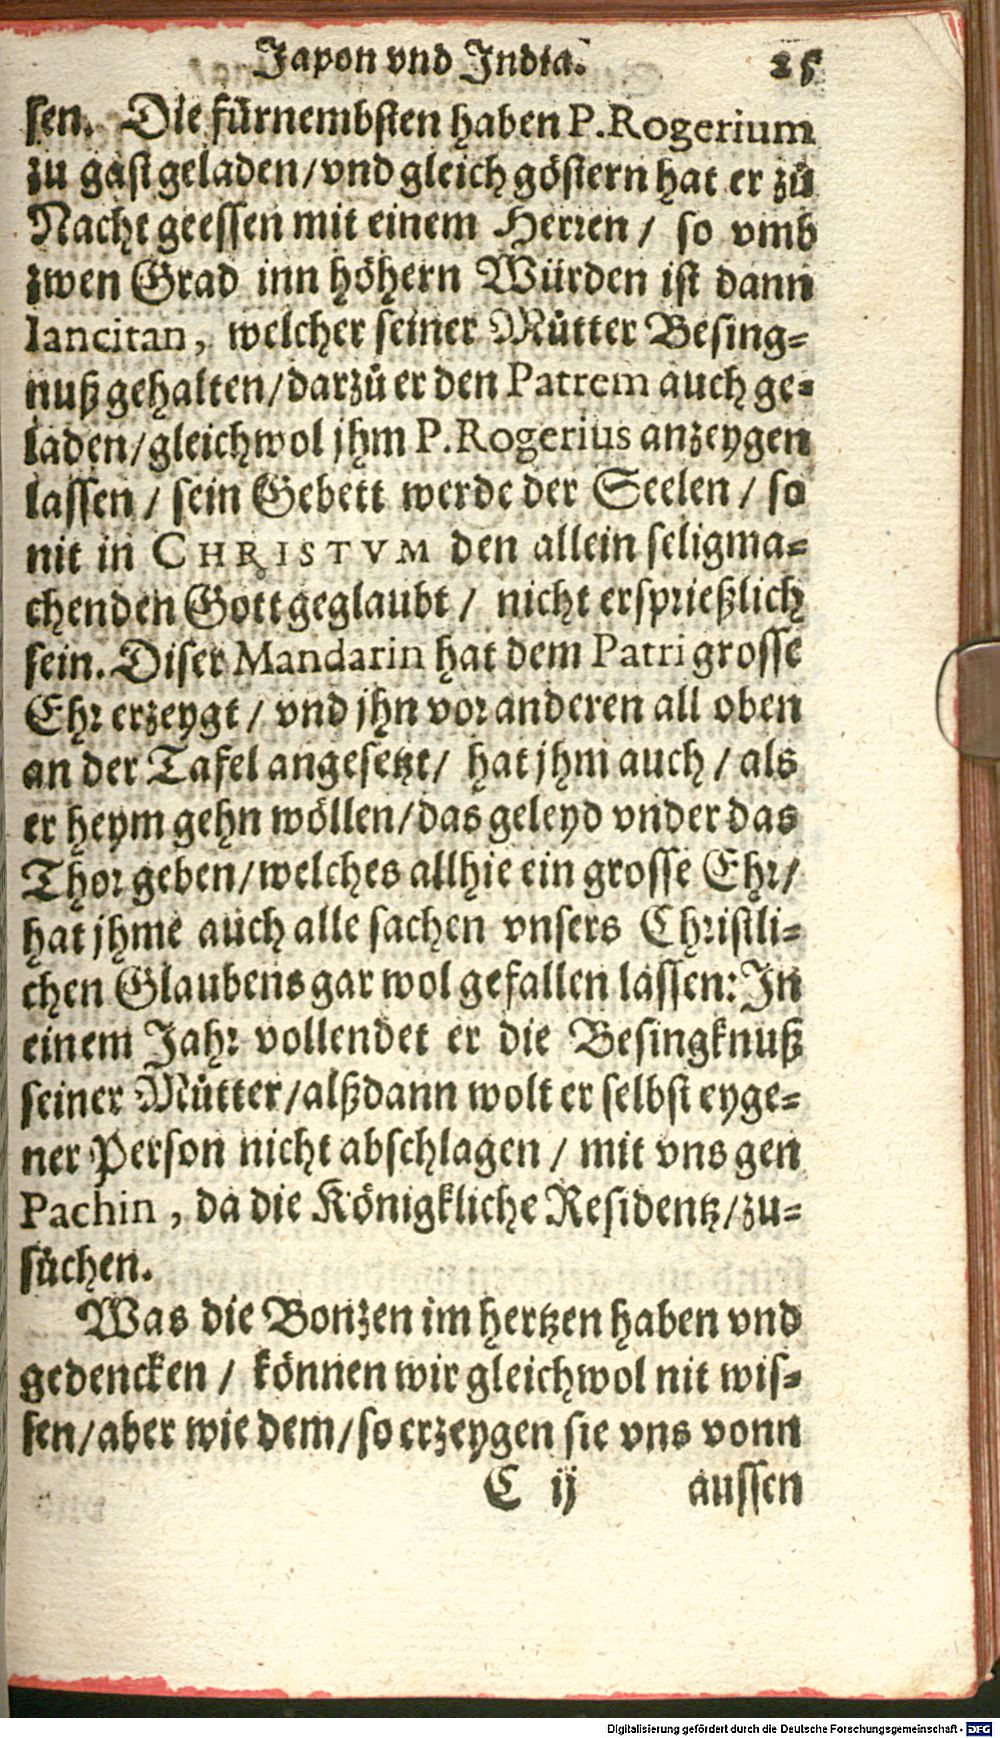 Japon vnd India. 25
sen. Die fürnembsten haben P. Rogerium
zu gast geladen / vnd gleich göstern hat er zů
Nacht geessen mit einem Herren / so vmb
zwen Grad inn höhern Würden ist dann
Iancitan, welcher seiner Můtter Besing-
nuß gehalten / darzů er den Patrem auch ge-
laden / gleichwol jhm P. Rogerius anzeygen
lassen / sein Gebett werde der Seelen / so
nit in CHRISTVM den allein seligma-
chenden Gott geglaubt / nicht ersprießlich
sein. Diser Mandarin hat dem Patri grosse
Ehr erzeygt / vnd jhn vor anderen all oben
an der Tafel angesetzt / hat jhm auch / als
er heym gehn wöllen / das geleyd vnder das
Thor geben / welches allhie ein grosse Ehr /
hat jhme auch alle sachen vnsers Christli-
chen Glaubens gar wol gefallen lassen: In
einem Jahr vollendet er die Besingknuß
seiner Můtter / alßdann wolt er selbst eyge-
ner Person nicht abschlagen / mit vns gen
Pachin, da die Königkliche Residentz / zu-
sůchen.
Was die Bonzen im hertzen haben vnd
gedencken / können wir gleichwol nit wis-
sen / aber wie dem / so erzeygen sie vns vonn
C ij aussen
Digitalisierung gefördert durch die Deutsche Forschungsgemeinschaft - DFG